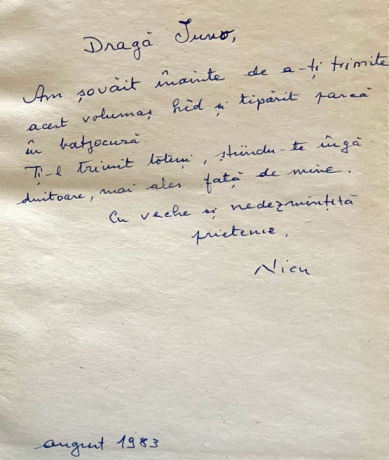 Dragă Juno,
Am șovăit înainte de a-ți trimite
acest volumaș hîd și tipărit parcă
în batjocură.
Ți-l trimit totuși, știindu-te îngă
duitoare, mai ales față de mine.
Cu veche și nedezmințită
prietenie,
Nicu
august 1983